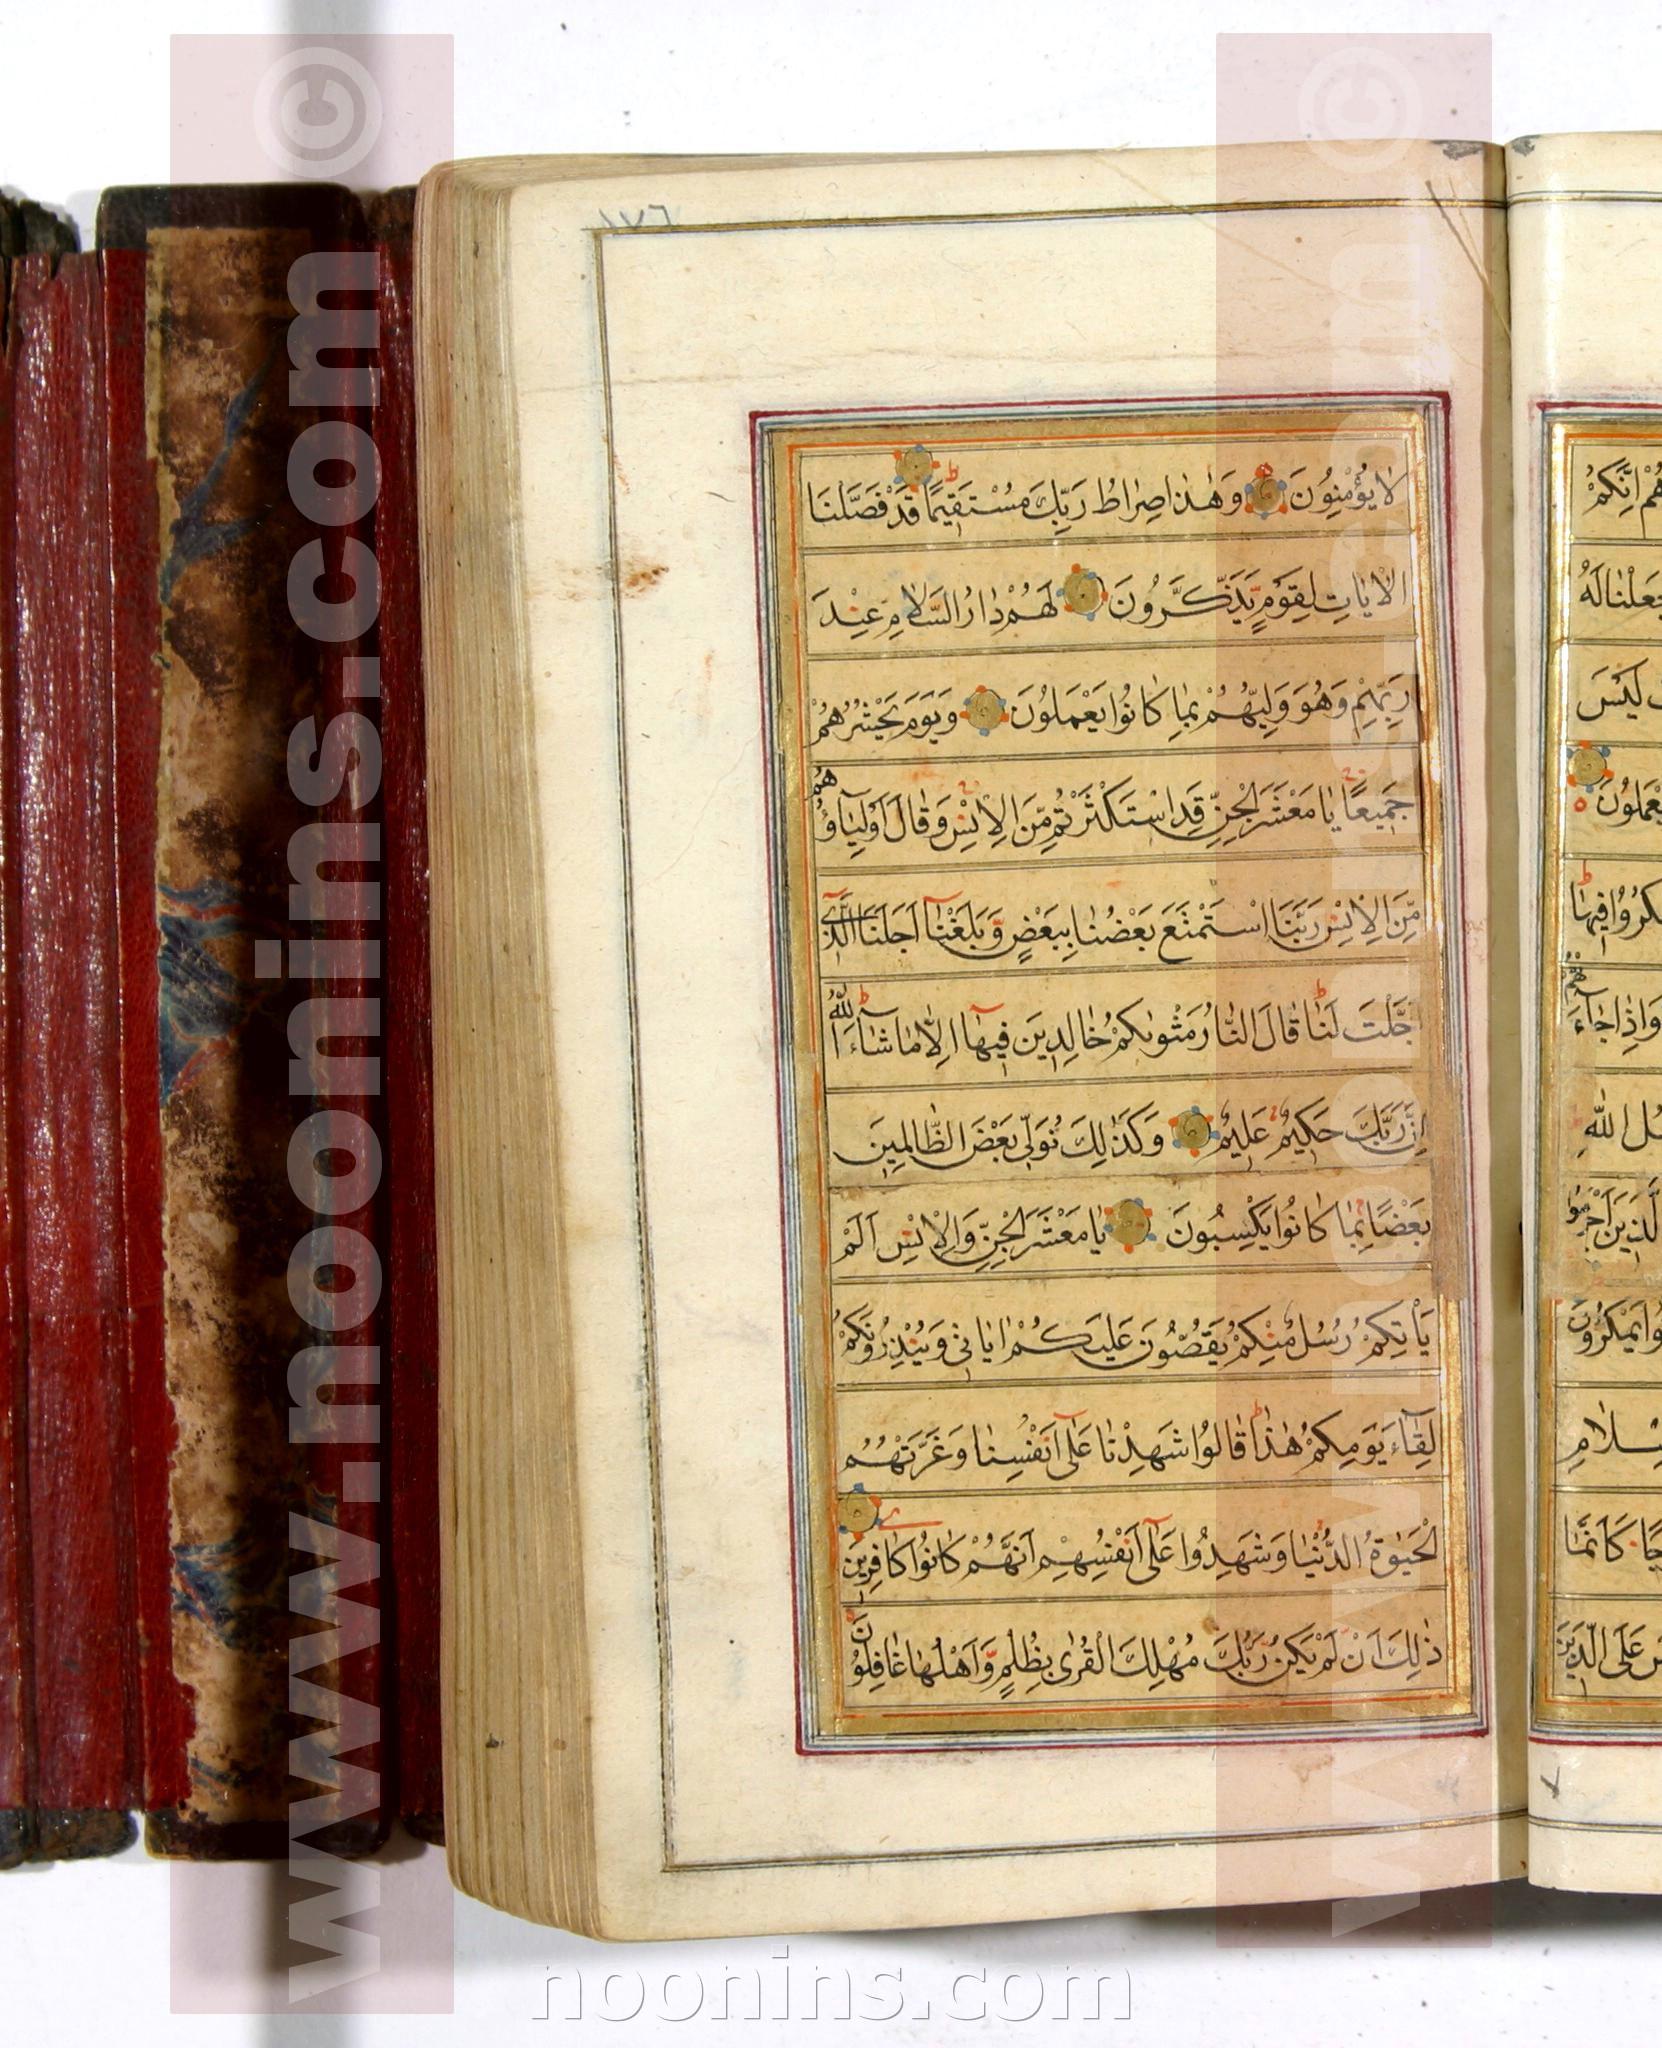 ١٧٦
لا يُؤْمِنُونَ وَهٰذا صِراطُ رَبِّكَ مُسْتَقِيمًا قَدْ فَصَّلْنَا
الْاٰياتِ لِقَوْمٍ يَذَّكَّرُونَ لَهُمْ دارُ السَّلامِ عِنْدَ
رَبِّهِمْ وَهُوَ وَلِيُّهُمْ بِما كانُوا يَعْمَلُونَ وَيَوْمَ يَحْشُرُهُمْ
جَمِيعًا يا مَعْشَرَ الْجِنِّ قَدِ اسْتَكْثَرْتُمْ مِنَ الْاِنْسِ وَقالَ اَوْلِياۤؤُهُمْ
مِنَ الْاِنْسِ رَبَّنَا اسْتَمْتَعَ بَعْضُنا بِبَعْضٍ وَبَلَغْناۤ اَجَلَنَا الَّذِىۤ
اَجَّلْتَ لَنا قالَ النّارُ مَثْوٰىكُمْ خالِدِينَ فِيهاۤ اِلّا ما شاۤءَ اللّٰهُ
اِنَّ رَبَّكَ حَكِيمٌ عَلِيمٌ وَكَذٰلِكَ نُوَلِّى بَعْضَ الظّالِمِينَ
بَعْضًا بِما كانُوا يَكْسِبُونَ يا مَعْشَرَ الْجِنِّ وَالْاِنْسِ اَلَمْ
يَأْتِكُمْ رُسُلٌ مِنْكُمْ يَقُصُّونَ عَلَيْكُمْ اٰياتِى وَيُنْذِرُونَكُمْ
لِقاۤءَ يَوْمِكُمْ هٰذا قالُوا شَهِدْنا عَلٰۤى اَنْفُسِنا وَغَرَّتْهُمُ
الْحَيٰوةُ الدُّنْيا وَشَهِدُوا عَلٰۤى اَنْفُسِهِمْ اَنَّهُمْ كانُوا كافِرِينَ
ذٰلِكَ اَنْ لَمْ يَكُنْ رَبُّكَ مُهْلِكَ الْقُرٰى بِظُلْمٍ وَاَهْلُها غافِلُونَ
هُمْ اِنَّكُمْ
جَعَلْنا لَهُ
لَيْسَ
يَعْمَلُونَ
فِيها
وَاِذا جاۤءَتْهُمْ
اللّٰهِ
الَّذِينَ اَجْرَمُوا
يَمْكُرُونَ
كَاَنَّما
عَلَى الَّذِينَ
www.noonins.com ©
www.noonins.com ©
noonins.com